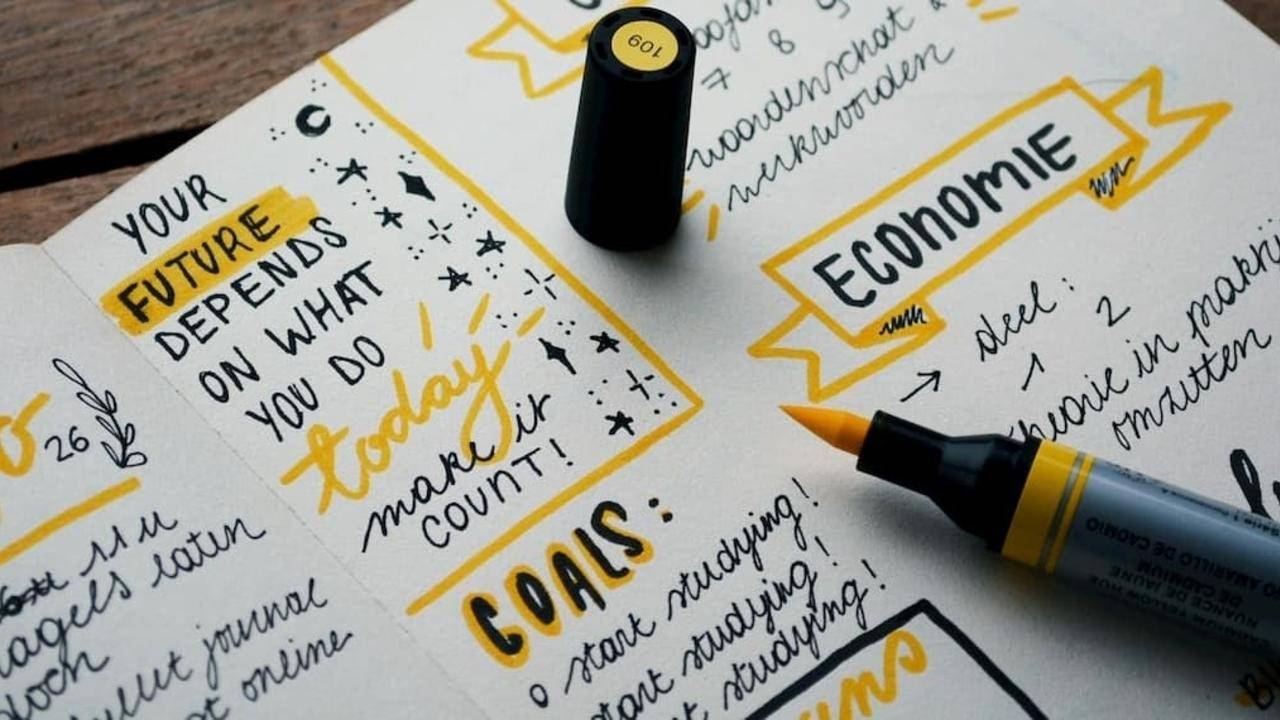 26
11 u
nagels laten
journal
online
YOUR
FUTURE
DEPENDS
ON WHAT
YOU DO
today
make it
COUNT!
GOALS:
o start studying!
start studying!
studying!
109
7 8 9
woordenschat &
werkwoorden
ECONOMIE
→ deel:
1 2
theorie in
omzetten
CADMIUM YELLOW HUE
NUANCE DE JAUNE
DE CADMIUM
AMARILLO DE CADMIO